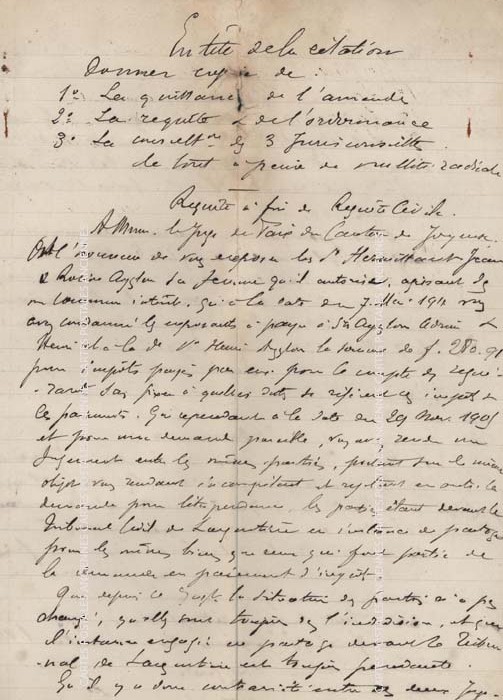 Entête de la citation
Donner copie de :
1º La quittance de l'amende
2º La requête & de l'ordonnance
3º La consulton des 3 Jurisconsultes
le tout à peine de nullité radicale
Requête à fin de Requête Civile.
A Monsr. le Juge de Paix du Canton de Joyeuse
l'honneur de vous exposer les Jean
& Ayglon sa femme qu'il autorise, agissant de
un commun intérêt, qu'à la date du 7 Mai 1911 vous
avez condamné les exposants à payer à Ayglon
Henri et à la de Vve Henri Ayglon la somme de f. 280.91
pour impôts payés par eux pour le compte des
dates
ces paiements. Que cependant à la date du 29 1905
et pour une demande pareille, vous avez rendu un
Jugement entre les mêmes parties, portant sur le même
objet vous rendant incompétent et
demande pour litispendance, les parties étant devant le
Tribunal Civil de Largentière en instance de partage
pour les mêmes biens que ceux qui font partie de
la demande en paiement d'impôt.
Que depuis ce la situation des parties n'a pas
changé, qu'elles sont toujours dans l'indivision, et que
l'instance engagée en partage devant le Tribu-
-nal de Largentière est toujours pendante.
Qu'il y a donc contrariété entre ces deux Juge